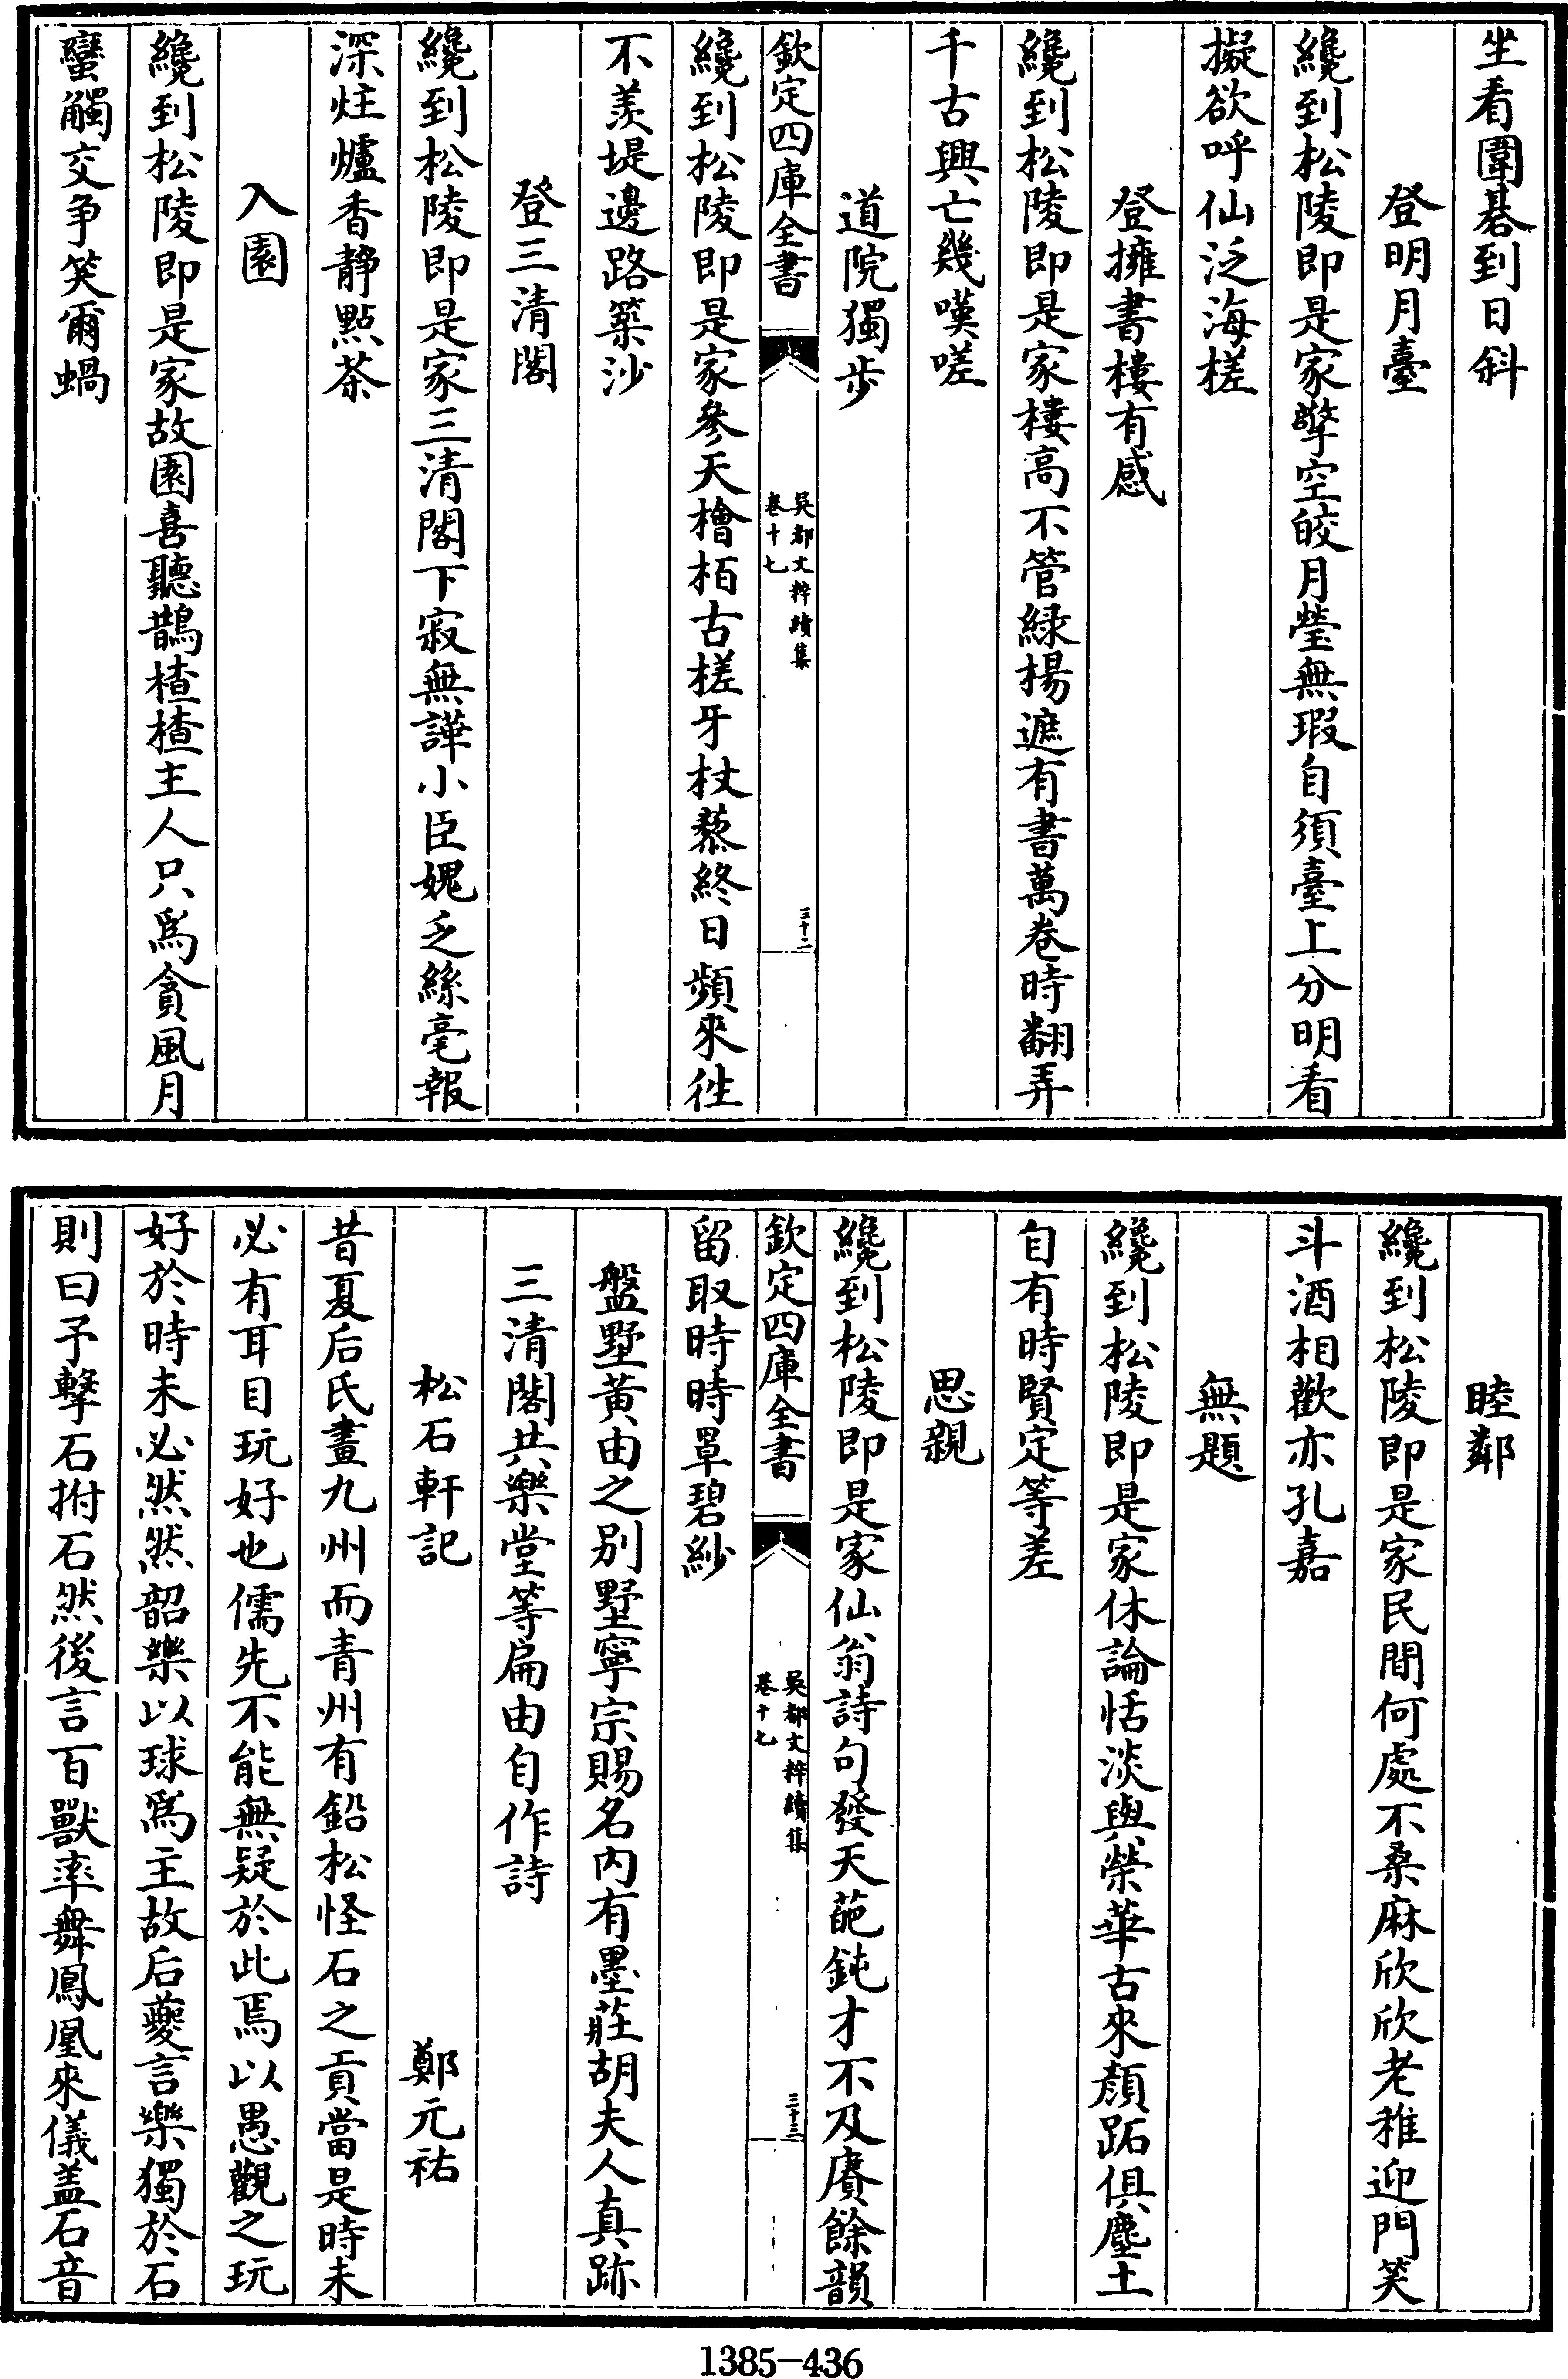 坐看圍棊到日斜
登明月臺
纔到松陵即是家擎空皎月瑩無瑕自須臺上分明看
擬欲呼仙泛海槎
登擁書樓有感
纔到松陵即是家樓高不管緑楊遮有書萬卷時翻弄
千古興亡幾嘆嗟
道院獨步
欽定四庫全書
吳都文粹續集
卷十七
三十二
纔到松陵即是家參天檜栢古槎牙杖藜終日頻來徃
不羡堤邊路築沙
登三清閣
纔到松陵即是家三清閣下寂無譁小臣媿乏絲毫報
深炷爐香靜點茶
入園
纔到松陵即是家故園喜聽鵲楂楂主人只爲貪風月
蠻觸交争笑爾蝸
睦鄰
纔到松陵即是家民間何處不桑麻欣欣老稚迎門笑
斗酒相歡亦孔嘉
無題
纔到松陵即是家休論恬淡與榮華古來顔跖俱塵土
自有時賢定等差
思親
纔到松陵即是家仙翁詩句發天葩鈍才不及賡餘韻
欽定四庫全書
吳都文粹續集
卷十七
三十三
留取時時罩碧紗
盤墅黃由之别墅寧宗賜名内有墨莊胡夫人真跡
三清閣共樂堂等扁由自作詩
松石軒記
鄭元祐
昔夏后氏畫九州而青州有鉛松怪石之貢當是時未
必有耳目玩好也儒先不能無疑於此焉以愚觀之玩
好於時未必然然韶樂以球爲主故后夔言樂獨於石
則曰予擊石拊石然後言百獸率舞鳳凰來儀盖石音
1385-436